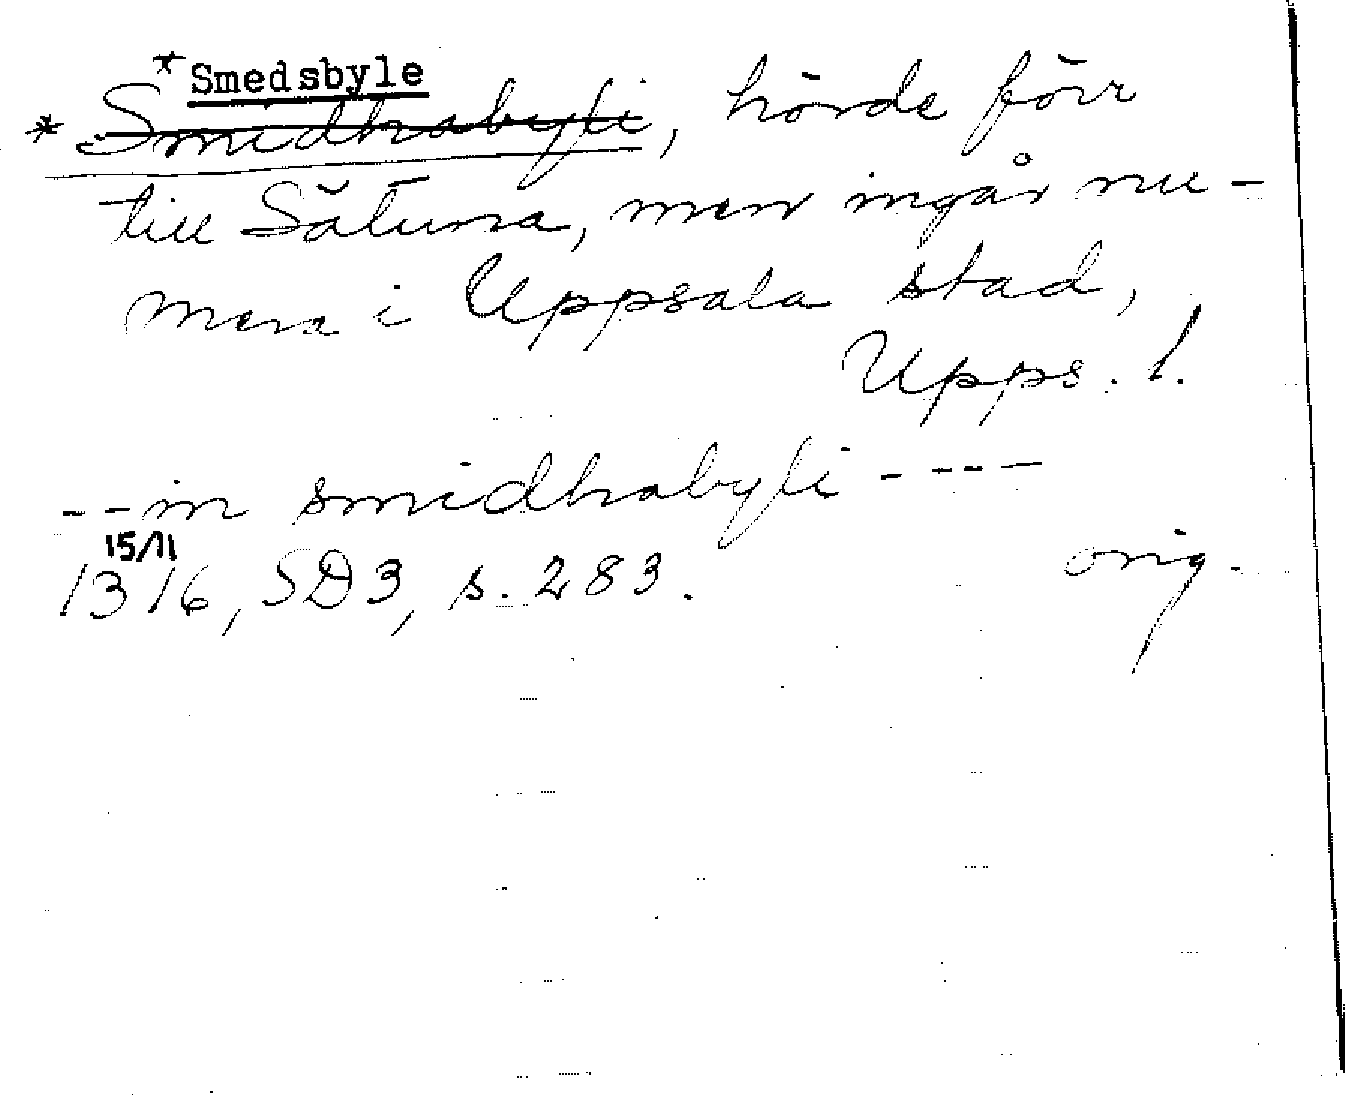 * Smedsbyle
* Smidhrabyli, hörde förr
till Sätuna, men ingår nu-
mera i Uppsala stad,
Upps. l.
-- in smidhrabyli ----
15/11
1316, SD3, s. 283. orig.